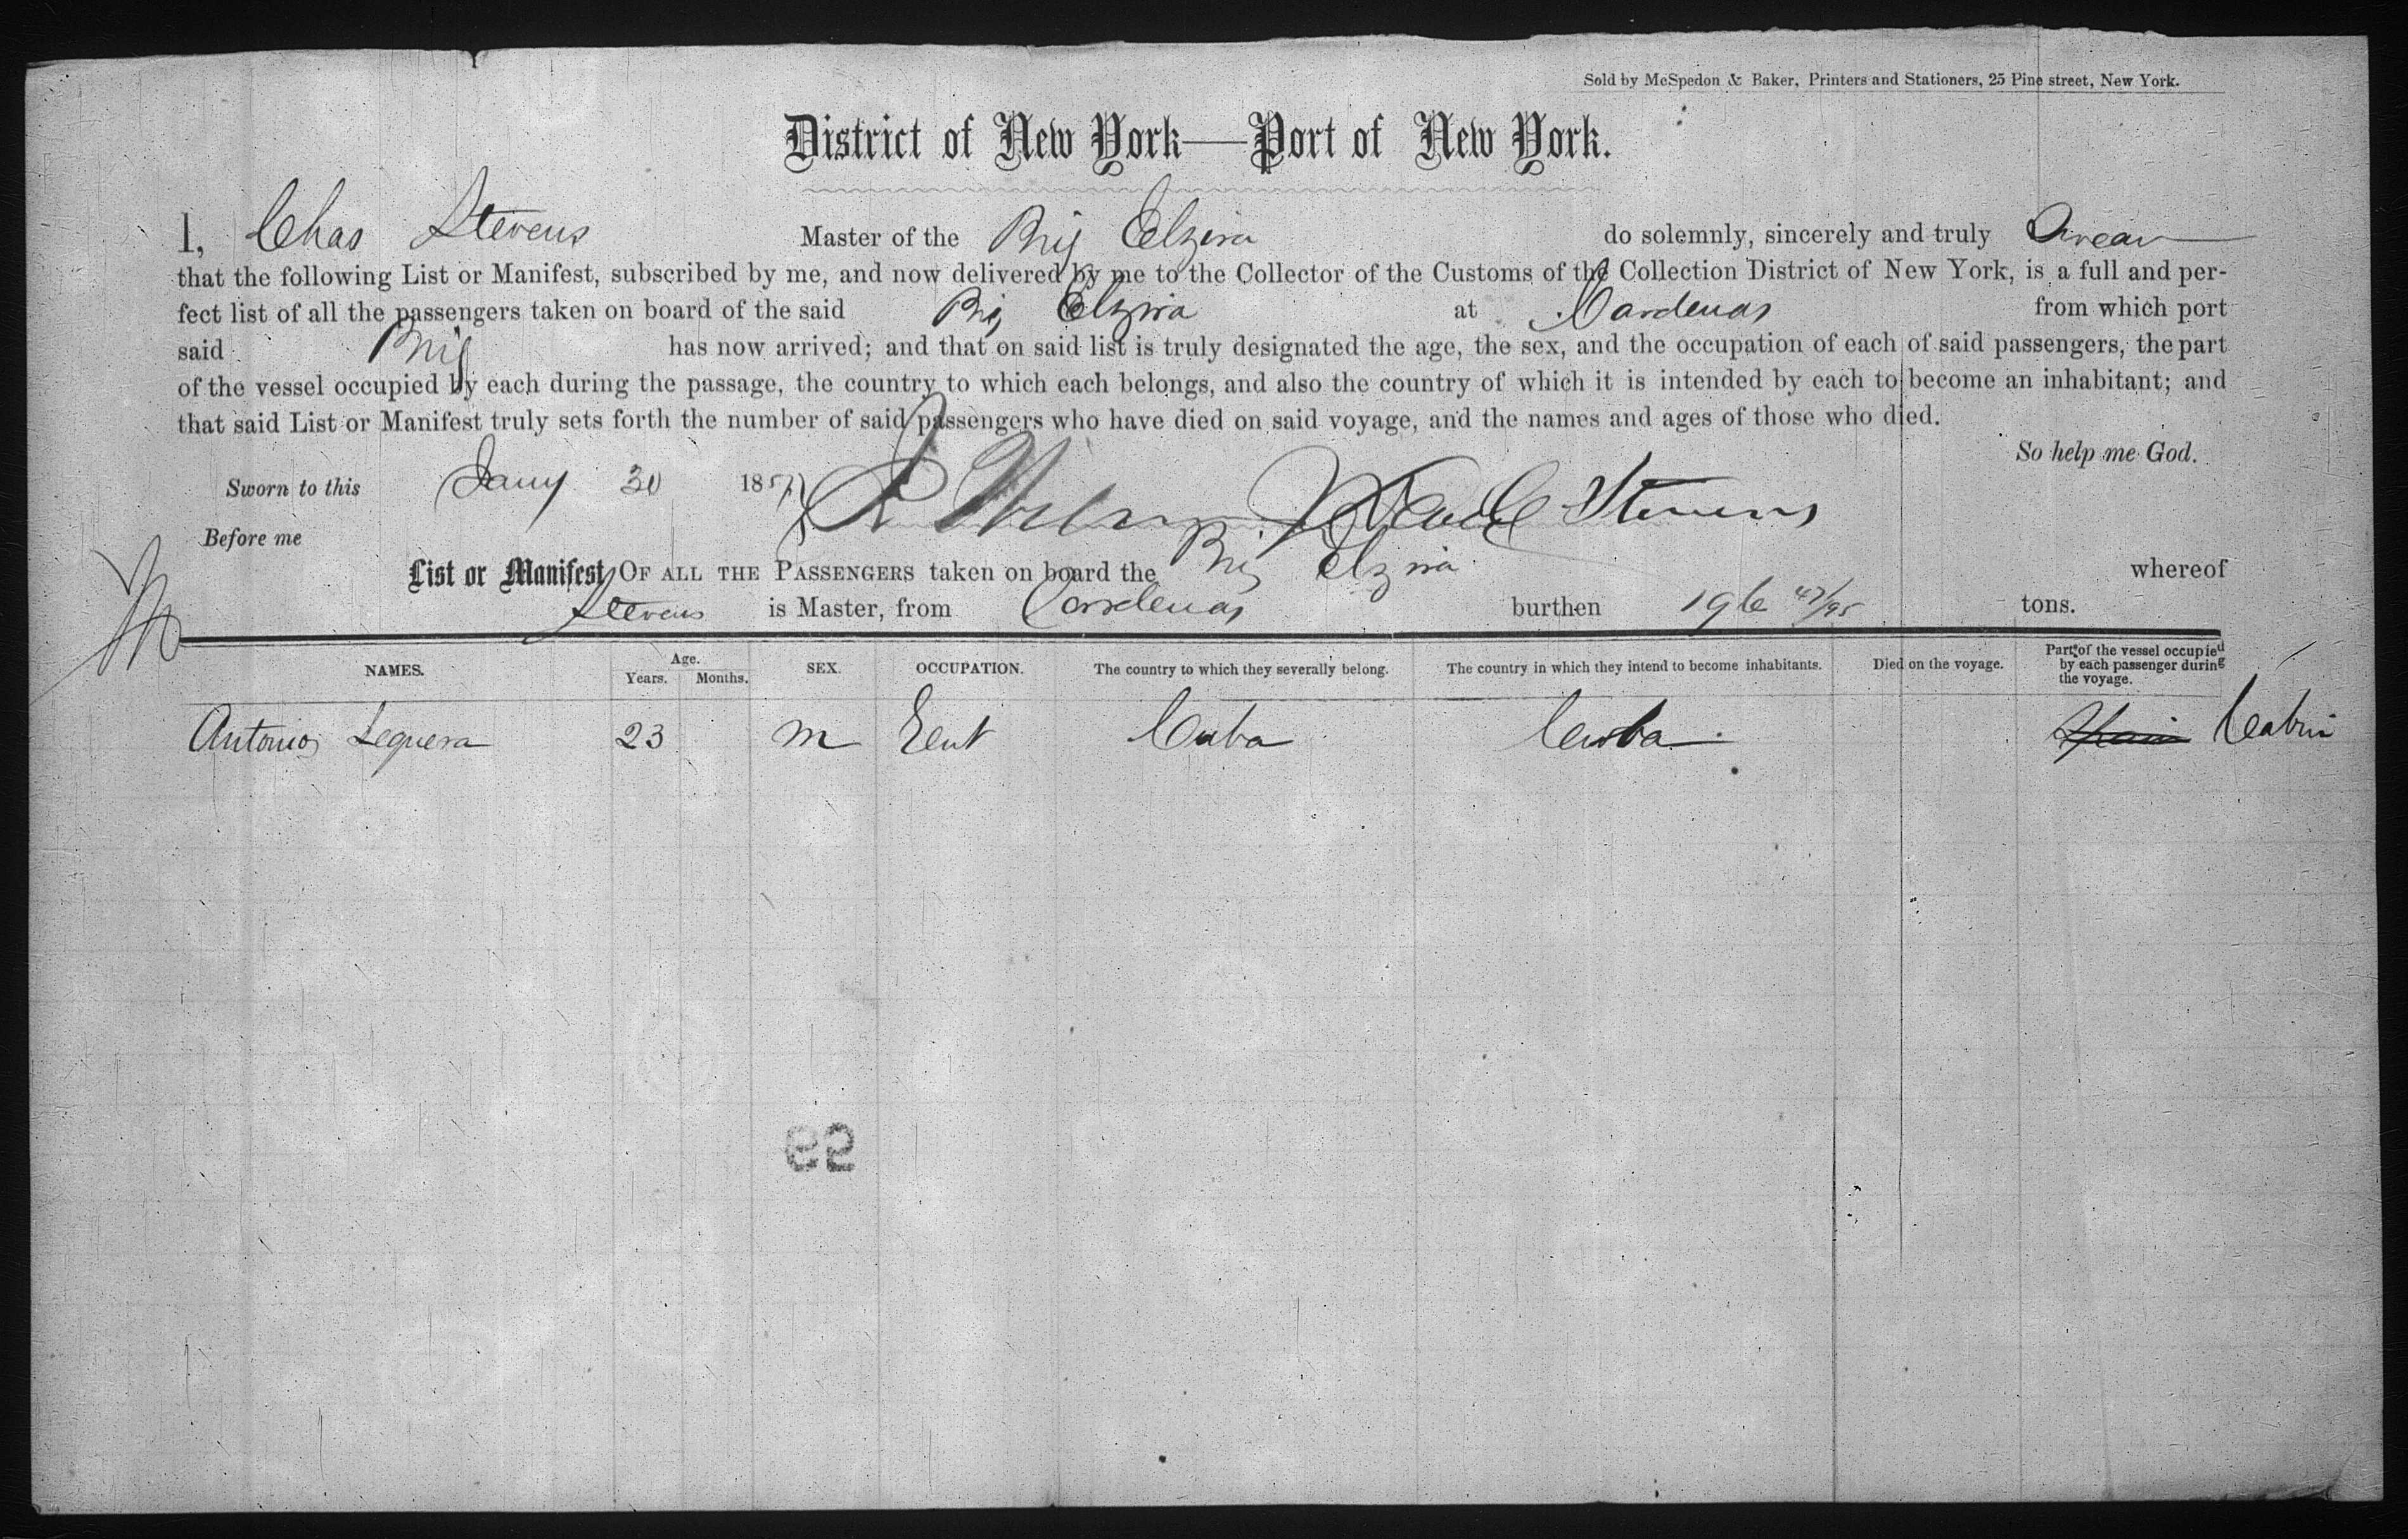 Sold by McSpedon & Baker, Printers and Stationers, 25 Pine street, New York.
District of New York—Port of New York.
I, Chas Stevens Master of the Brig Elzira do solemnly, sincerely and truly Swear
that the following List or Manifest, subscribed by me, and now delivered by me to the Collector of the Customs of the Collection District of New York, is a full and per-
fect list of all the passengers taken on board of the said Brig Elzira at Cardenas from which port
said Brig has now arrived; and that on said list is truly designated the age, the sex, and the occupation of each of said passengers, the part
of the vessel occupied by each during the passage, the country to which each belongs, and also the country of which it is intended by each to become an inhabitant; and
that said List or Manifest truly sets forth the number of said passengers who have died on said voyage, and the names and ages of those who died.
So help me God.
Sworn to this Jany 30 1857 Stevens
Before me
List or Manifest OF ALL THE PASSENGERS taken on board the Brig Elzira whereof
Stevens is Master, from Cardenas burthen 196 47/95 tons.
NAMES. Age. Years. Months. SEX. OCCUPATION. The country to which they severally belong. The country in which they intend to become inhabitants. Died on the voyage. Part of the vessel occupied by each passenger during the voyage.
Antonio Sequera 23 m Gent Cuba Cuba Spain Cabin